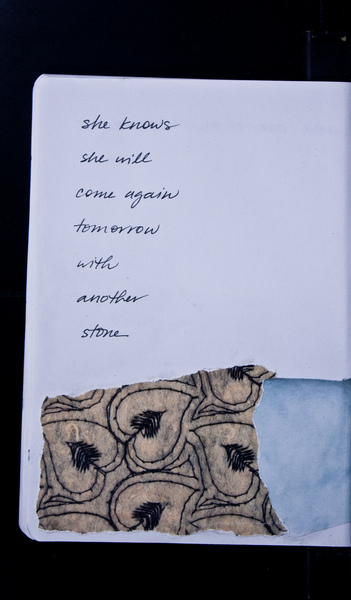 she knows
she will
come again
tomorrow
with
another
stone